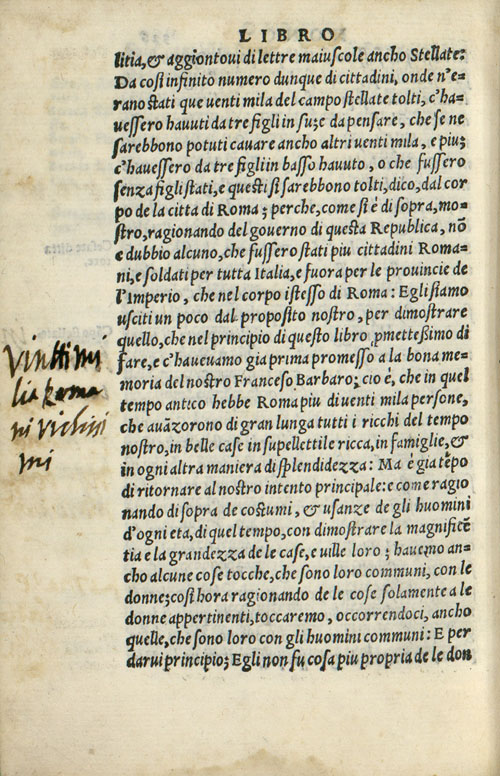 LIBRO
litia, & aggiontovi di lettre maiuscole ancho Stellate:
Da cosi infinito numero dunque di cittadini, onde n'e-
rano stati que uenti mila del campo stellate tolti, c'ha-
uessero hauuti da tre figli in su; e da pensare, che se ne
sarebbono potuti cauare ancho altri uenti mila, e piu;
c'hauessero da tre figli in basso hauuto, o che fussero
senza figli stati, e questi si sarebbono tolti, dico, dal cor
po de la citta di Roma; perche, come si é di sopra, mo-
stro, ragionando del governo di questa Republica, nō
e dubbio alcuno, che fussero stati piu cittadini Roma-
ni, e soldati per tutta Italia, e fuora per le prouincie de
l'Imperio, che nel corpo istesso di Roma: Egli siamo
usciti un poco dal proposito nostro, per dimostrare
quello, che nel principio di questo libro ꝓmettessimo di
fare, e c'haueuamo gia prima promesso a la bona me-
moria del nostro Franceso Barbaro; cio é, che in quel
tempo antico hebbe Roma piu di uenti mila persone,
che auāzorono di gran lunga tutti i ricchi del tempo
nostro, in belle case in supellettile ricca, in famiglie, &
in ogni altra maniera di splendidezza: Ma é gia tēpo
di ritornare al nostro intento principale: e come ragio
nando di sopra de costumi, & usanze de gli huomini
d'ogni eta, di quel tempo, con dimostrare la magnificē
tia e la grandezza de le case, e uille loro; hauemo an-
cho alcune cose tocche, che sono loro communi, con le
donne; cosi hora ragionando de le cose solamente a le
donne appertinenti, toccaremo, occorrendoci, ancho
quelle, che sono loro con gli huomini communi: E per
darui principio; Egli non fu cosa piu propria de le don
Vinttimi
lia Roma
ni richissi
mi